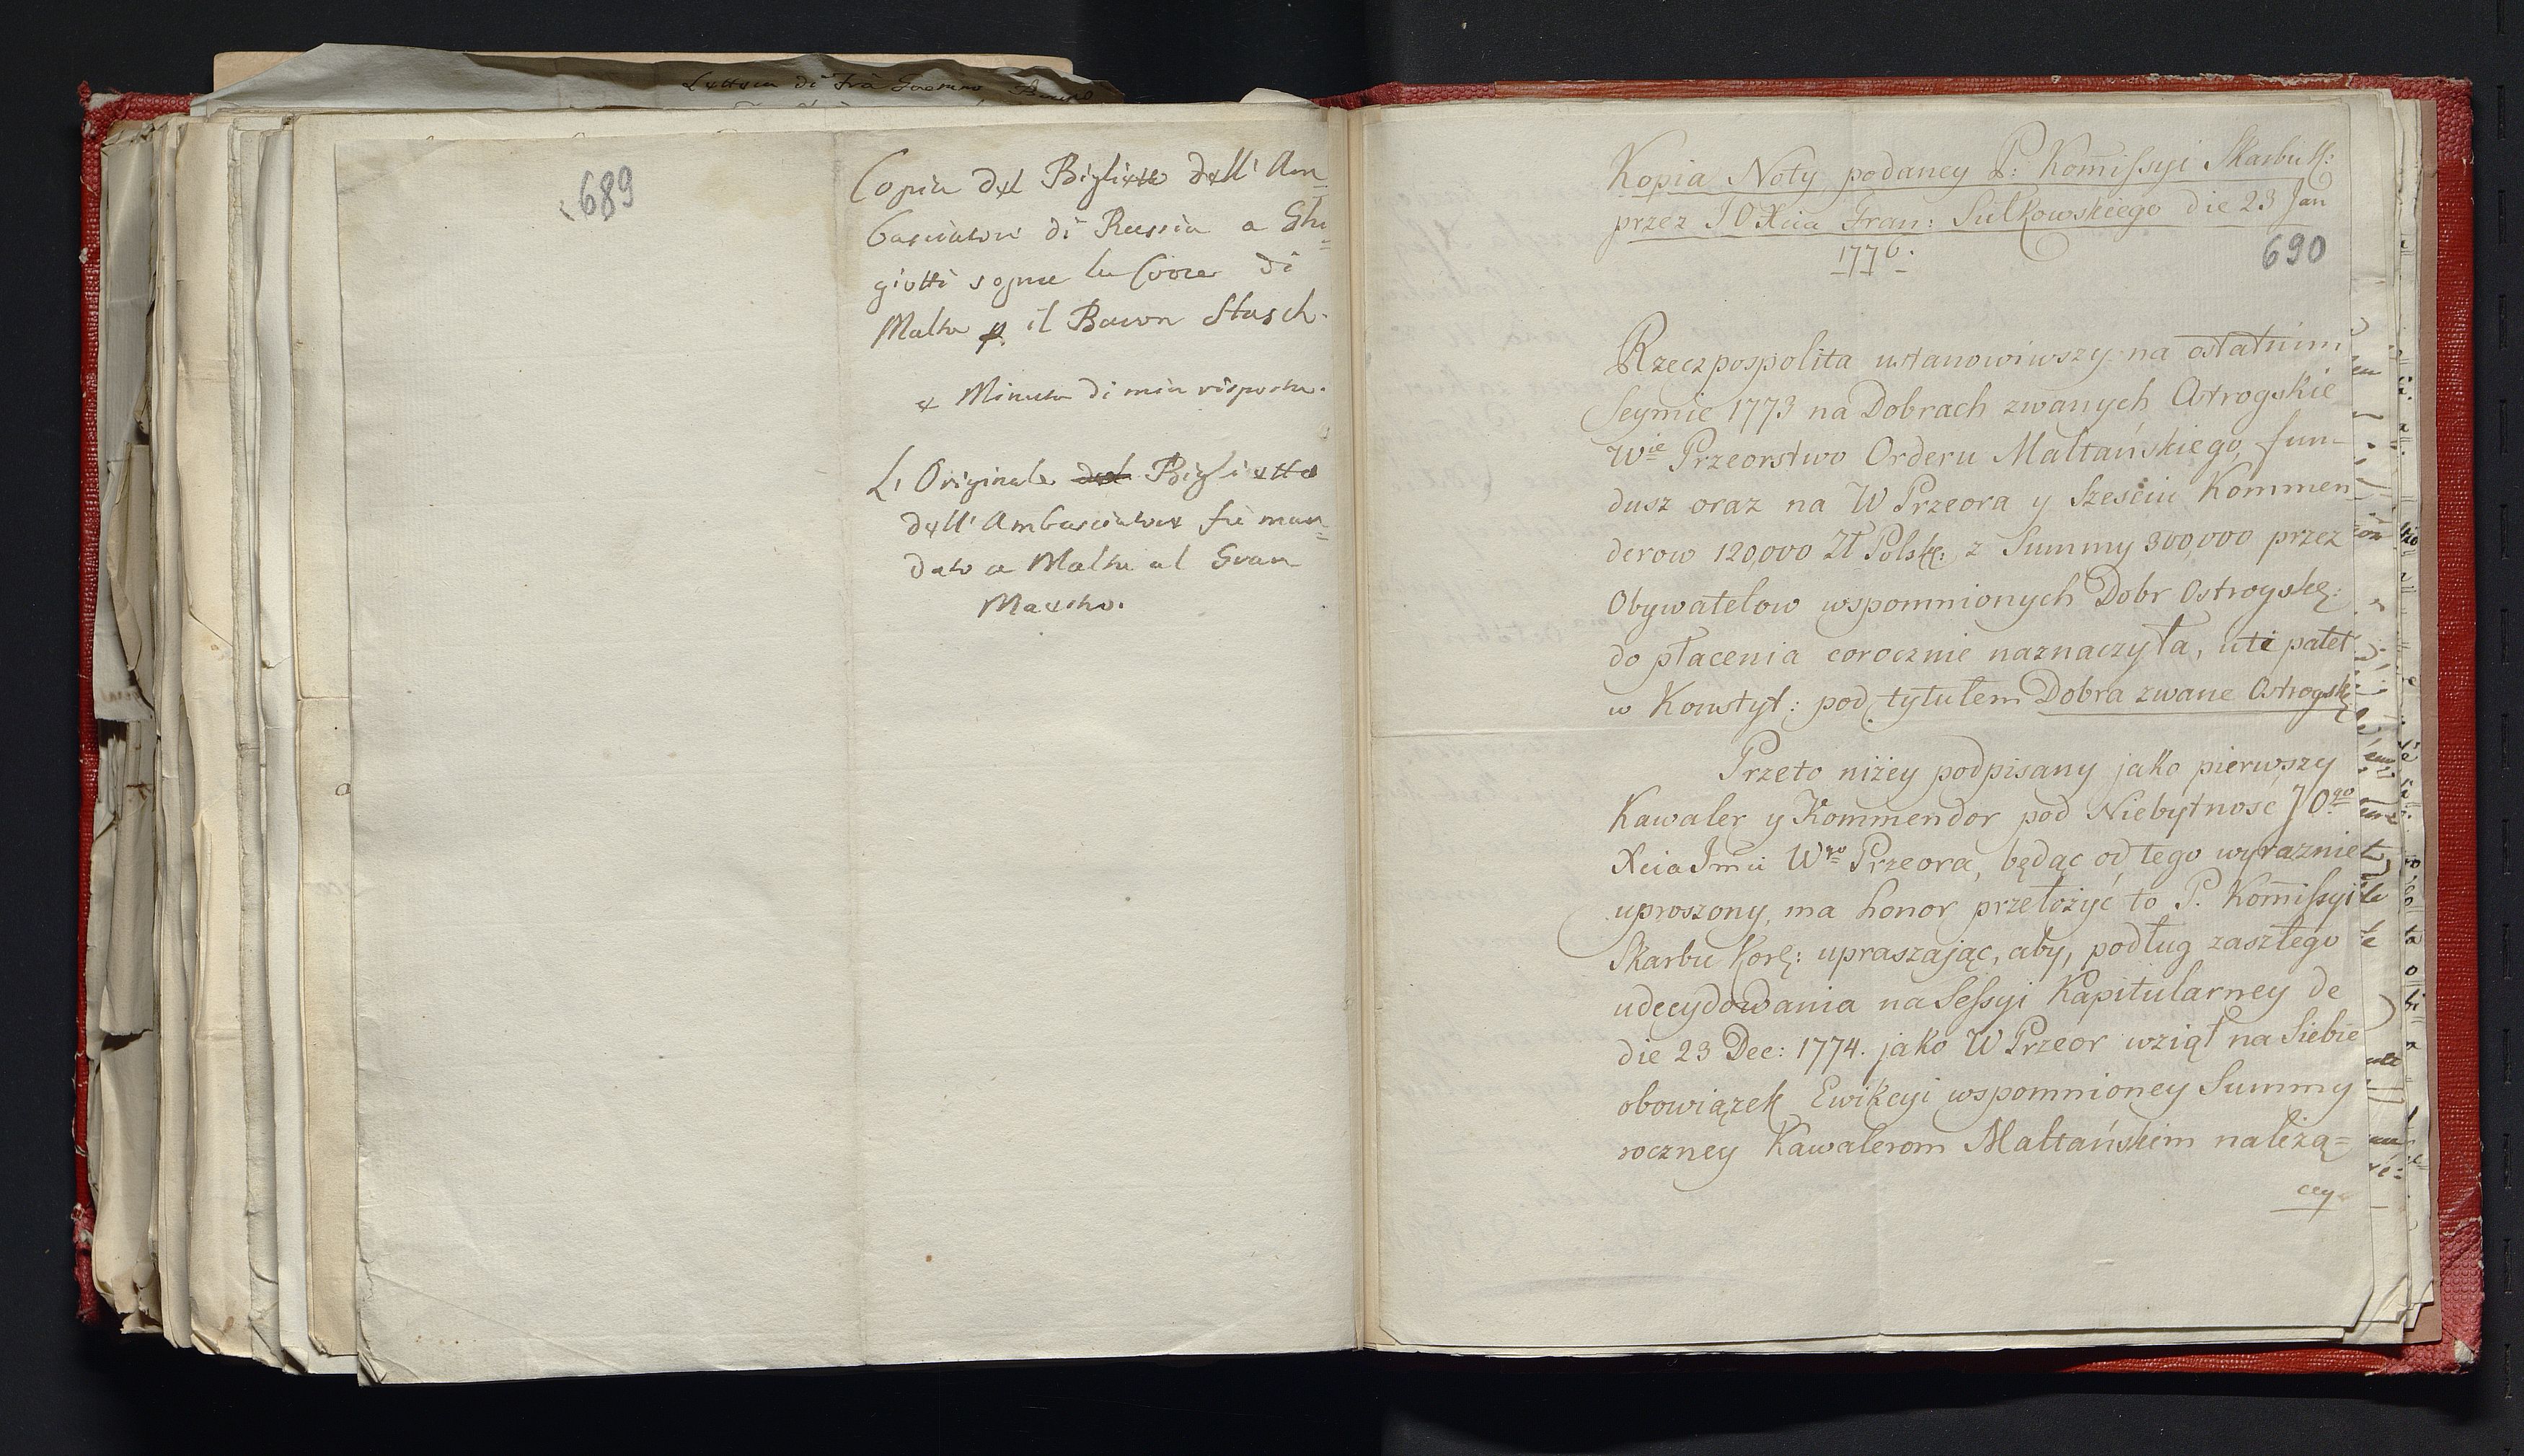 Lettera di Frà
689
Copia del Biglietto dell' Am=
basciatore di Russia a Ghi=
giotti sopra la Croce di
Malta p. il Baron Stasch.
e Minuta di mia risposta.
L' Originale del Biglietto
dell' Ambasciatore fù man=
dato a Malta al Gran
Maestro.
Kopia Noty podaney P: Kom̃issyi Skarbu K:
przez JO Xcia Fran: Sulkowskiego die 23 Jan
1776.
690
Rzeczpospolita ustanowiwszy na ostatnim
Seymie 1773 na Dobrach zwanych Ostrogskie
Wie Przeorstwo Orderu Maltańskiego, fun-
dusz oraz na W Przeora y Sześciu Kommen
derow 120,000 Zł Polsk: z Summy 300,000 przez
Obywatelow wspomnionych Dobr Ostrogsk:
do płacenia corocznie naznaczyła, uti patet
w Konstyt: pod tytułem Dobra zwane Ostrogsk
Przeto niżey podpisany jako pierwszy
Kawaler y Kommendor pod Niebytność JOgo
Xcia Jmci Wgo Przeora, będąc od tego wyraznie
uproszony, ma honor przełożyć to P. Kom̃issyi
Skarbu Kor: upraszając, aby, podług zaszłego
udecydowania na Sessyi Kapitularney de
die 23 Dec: 1774. jako W Przeor wziął na Siebie
obowiązek Ewikcyi wspomnioney Summy
roczney Kawalerom Maltańskim należą=
cey